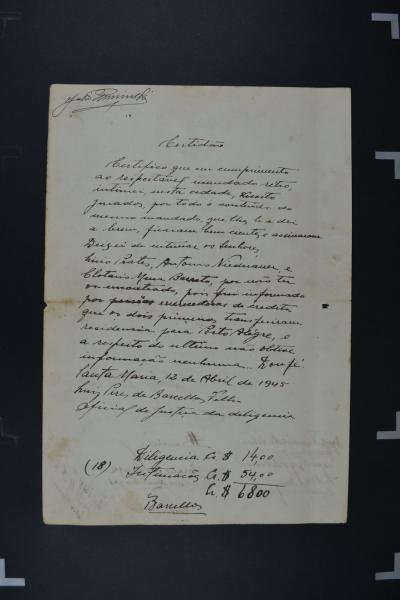 Certidão
Certifico que em cumprimento
ao respeitavel mandado retro,
intimei, nesta cidade,
jurados, por todo o conteúdo do
mesmo mandado, que lhes li e dei
a lerem, ficaram bem cientes e assinaram
Deixei de intimar os senhores,
Luis Prates, Antonio Niederauer, e
Clotario Barreto, por não ter
os encontrado, pois fui informado
por pessoas de credito
que os dois primeiros transferiram
residencia para Porto Alegre, e
a respeito do ultimo não obtive
informação nenhuma. Dou fé.
Santa Maria, 12 de Abril de 1945
Luiz Pires de Barcellos, Filho
Oficial de Justiça da diligencia
Diligencia Cr.$ 14,00
(18) Intimação Cr.$ 54,00
Cr.$ 6800
Barcellos